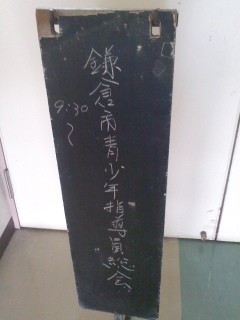 鎌倉市青少年指導員総会
9:30
〜